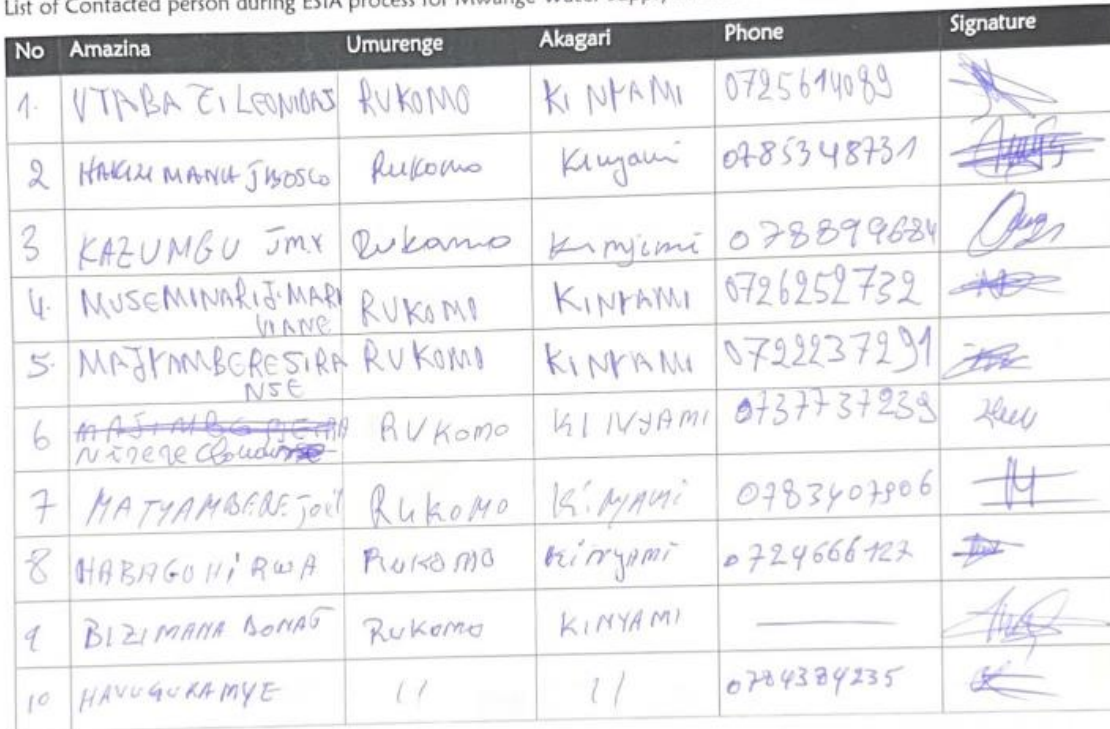 List of Contacted person during ESIA process for Mwange Water Supply
No Amazina Umurenge Akagari Phone Signature
1. VTABA ZI LEONIDAS RUKOMO KINYAMI 0725614089
2 HAKIZI MANA JBOSCO Rukomo Kinyami 0785348731
3 KAZUMGU JMV Rukomo Kinyami 0788899684
4. MUSEMINARI J. MARI RUKOMO KINYAMI 0726252732
VIANE
5. MAJYAMBERE SIRA RUKOMO KINYAMI 0722237291
NSE
6 RUKOMO KINYAMI 0737737239
Nirere
7 MAJYAMBERE Joel RUKOMO Kinyami 0783407906
8 HABAGUHIRWA RUKOMO Kinyami 0724666127
9 BIZIMANA DONAT RUKOMO KINYAMI
10 HAVUGURAMYE 11 11 0784384235